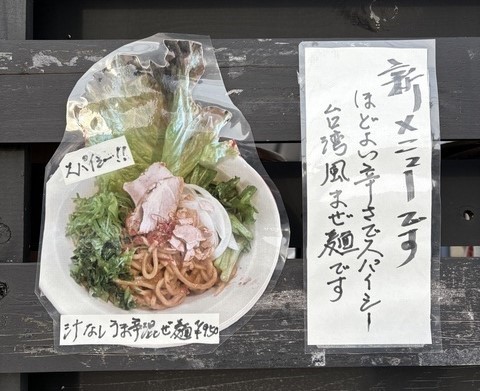 スパイシー!!
汁なしうま辛混ぜ麺¥950
新メニューです
ほどよい辛さでスパイシー
台湾風まぜ麺です